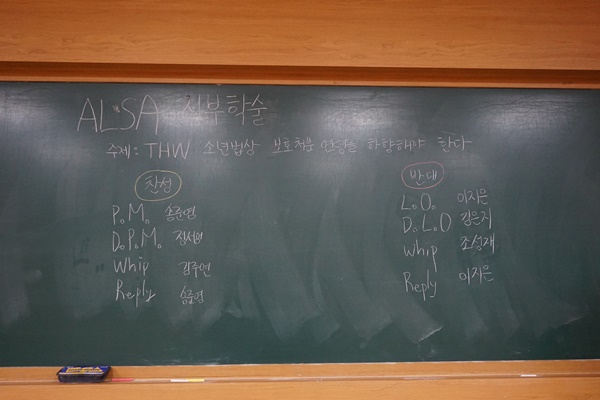 ALSA 지부학술
주제: THW 소년법상 보호처분 연령을 하향해야 한다
찬성
P.M. 송준영
D.P.M. 정서영
Whip 김주연
Reply 송준영
반대
L.O. 이지은
D.L.O 김은지
Whip 조성재
Reply 이지은